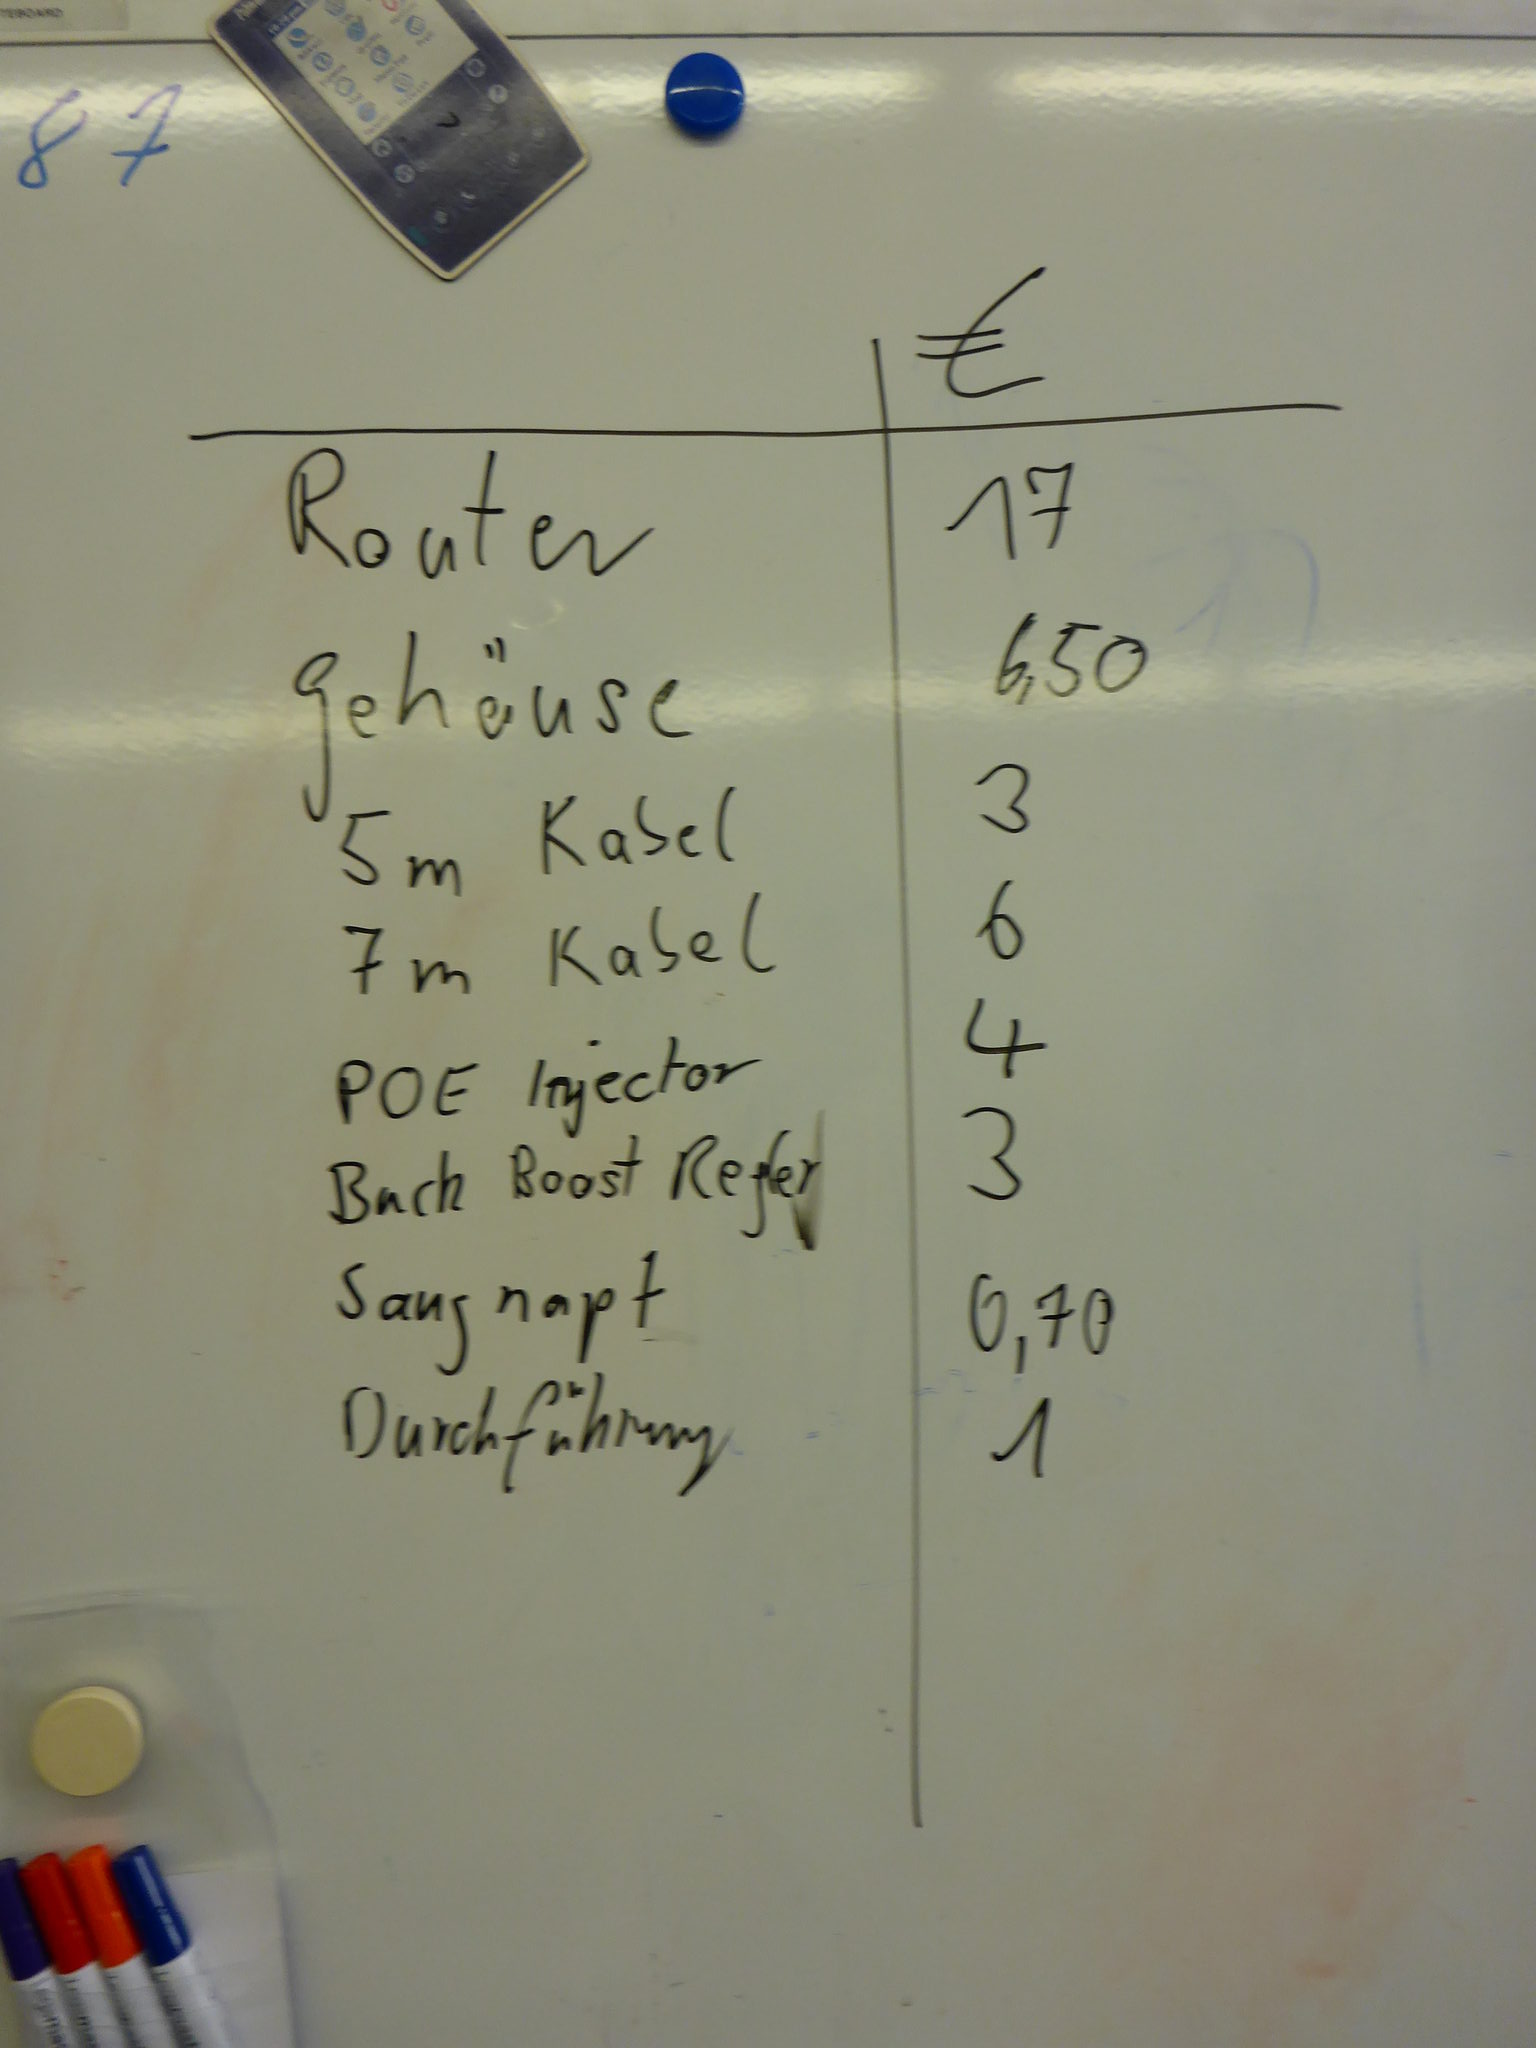 TEBOARD
87
€
Router 17
Gehäuse 6,50
5m Kabel 3
7m Kabel 6
POE Injector 4
Buck Boost Regler 3
Saugnapf 0,70
Durchführung 1